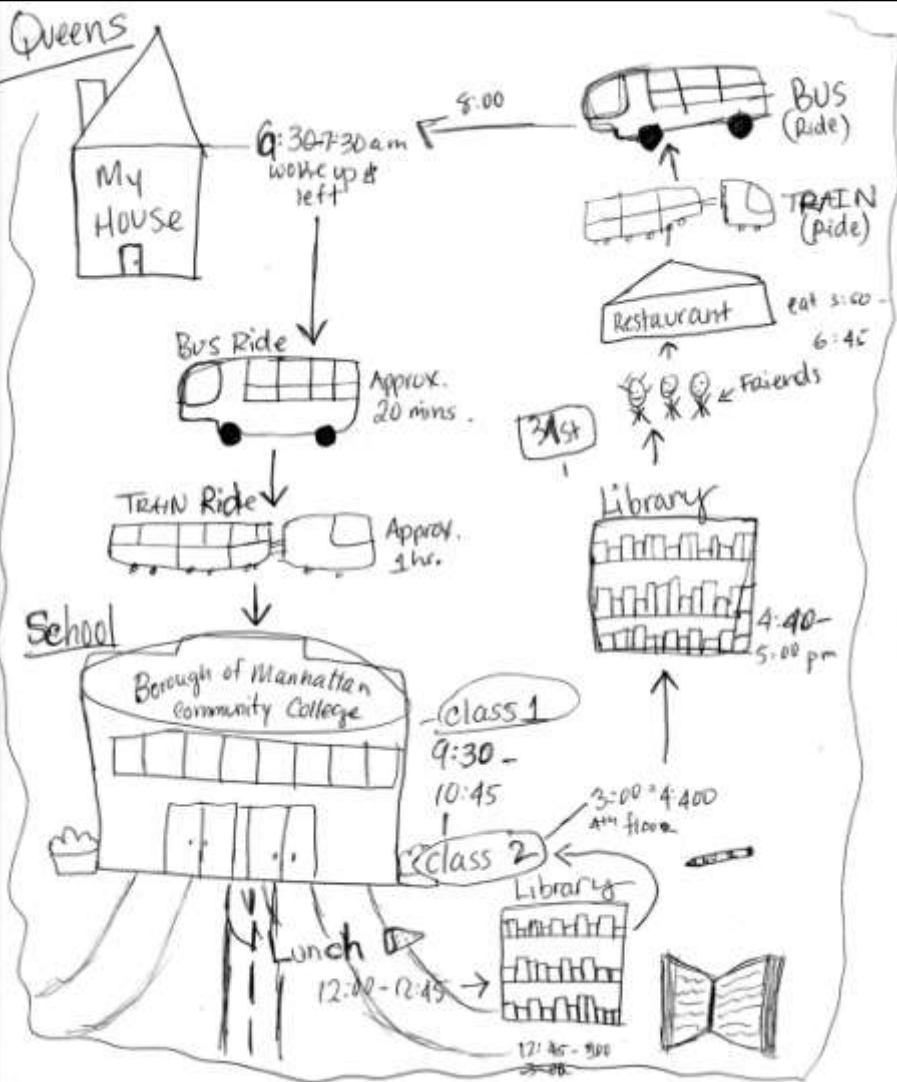 Queens
My
House
6:30-7:30am
woke up &
left
8:00
BUS
(Ride)
TRAIN
(Ride)
Restaurant
eat
6:45
Friends
Bus Ride
Approx.
20 mins.
TRAIN Ride
Approx.
1hr.
31st
Library
4:40-
5:00 pm
School
Borough of Manhattan
Community College
class 1
9:30-
10:45
class 2
3:00-4:400
4th floor
Lunch
12:00-12:45
Library
12:45-